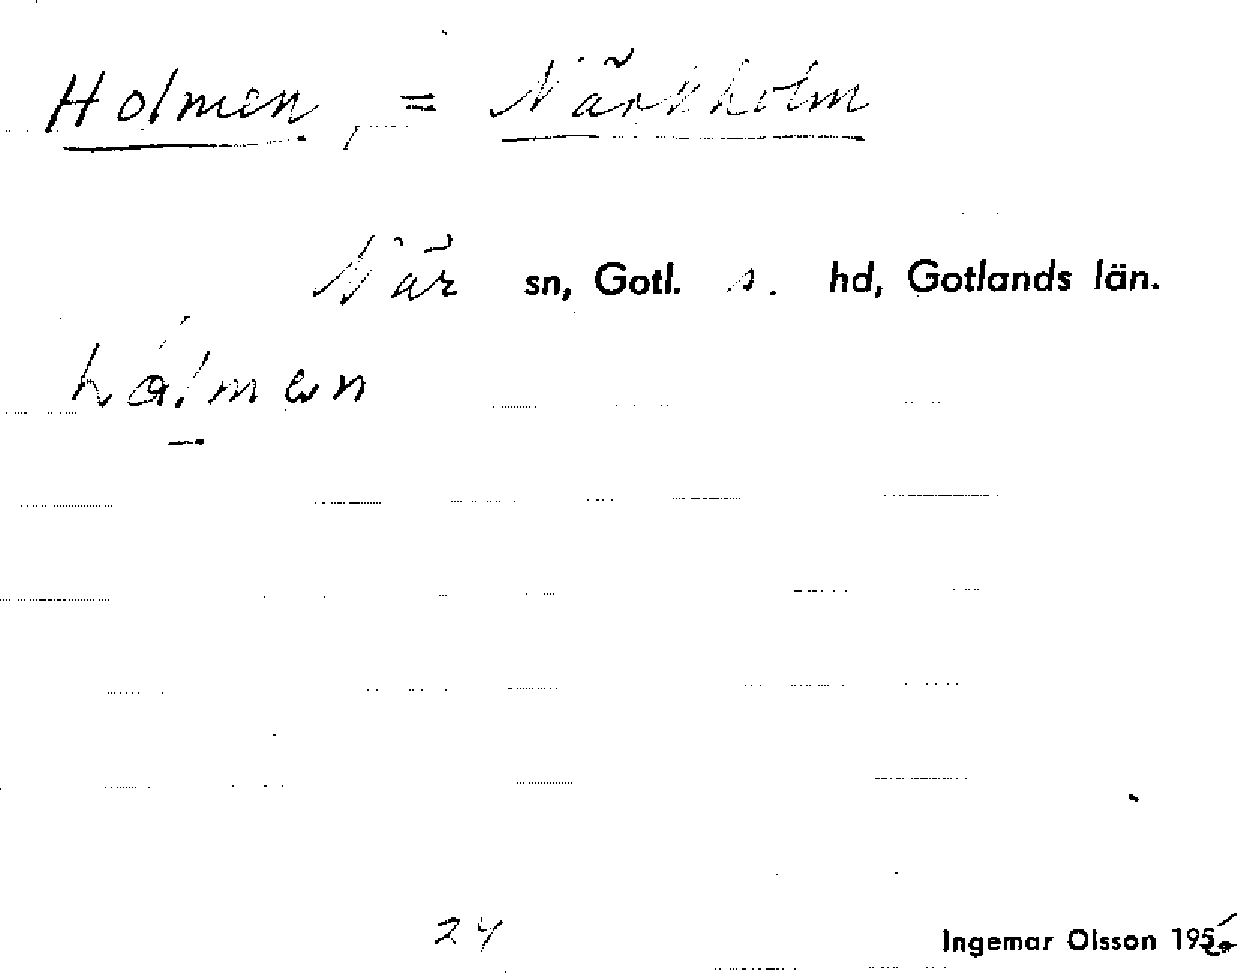 Holmen, = Närkholm
När sn, Gotl. s. hd, Gotlands län.
hålmen
24
Ingemar Olsson 195